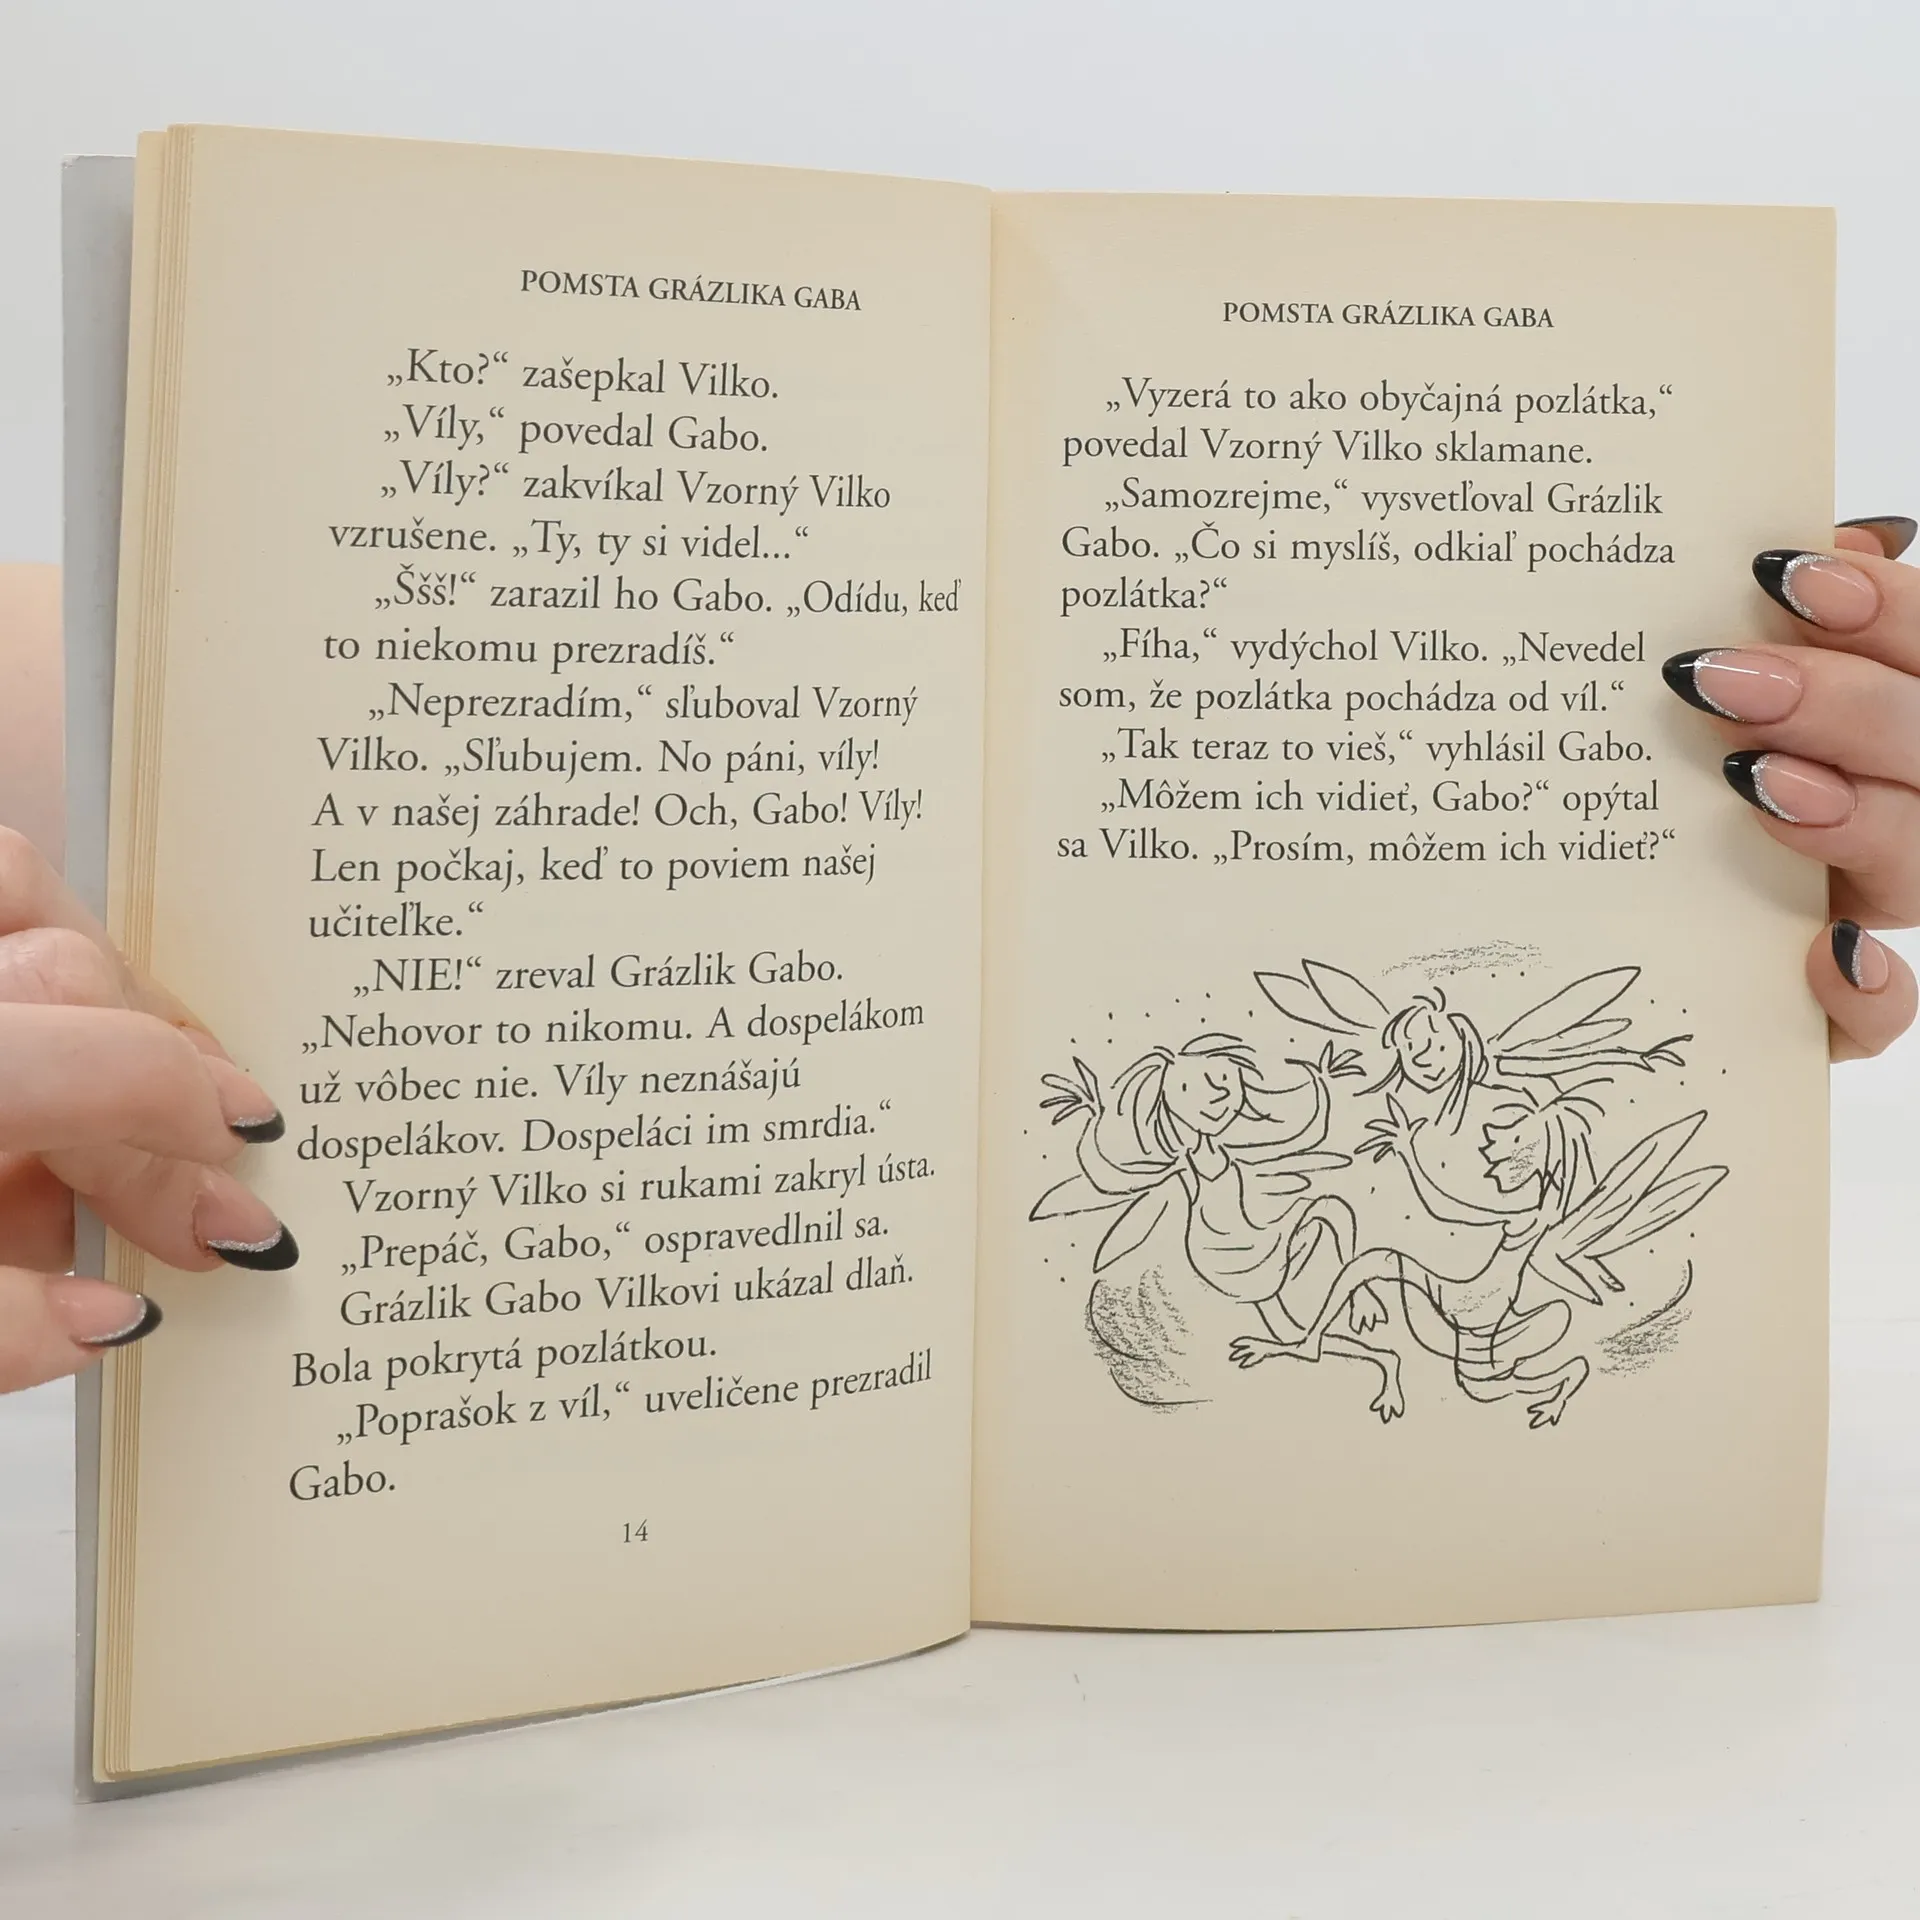 POMSTA GRÁZLIKA GABA
„Kto?“ zašepkal Vilko.
„Víly,“ povedal Gabo.
„Víly?“ zakvíkal Vzorný Vilko
vzrušene. „Ty, ty si videl...“
„Ššš!“ zarazil ho Gabo. „Odídu, keď
to niekomu prezradíš.“
„Neprezradím,“ sľuboval Vzorný
Vilko. „Sľubujem. No páni, víly!
A v našej záhrade! Och, Gabo! Víly!
Len počkaj, keď to poviem našej
učiteľke.“
„NIE!“ zreval Grázlik Gabo.
„Nehovor to nikomu. A dospelákom
už vôbec nie. Víly neznášajú
dospelákov. Dospeláci im smrdia.“
Vzorný Vilko si rukami zakryl ústa.
„Prepáč, Gabo,“ ospravedlnil sa.
Grázlik Gabo Vilkovi ukázal dlaň.
Bola pokrytá pozlátkou.
„Poprašok z víl,“ uveličene prezradil
Gabo.
14
POMSTA GRÁZLIKA GABA
„Vyzerá to ako obyčajná pozlátka,“
povedal Vzorný Vilko sklamane.
„Samozrejme,“ vysvetľoval Grázlik
Gabo. „Čo si myslíš, odkiaľ pochádza
pozlátka?“
„Fíha,“ vydýchol Vilko. „Nevedel
som, že pozlátka pochádza od víl.“
„Tak teraz to vieš,“ vyhlásil Gabo.
„Môžem ich vidieť, Gabo?“ opýtal
sa Vilko. „Prosím, môžem ich vidieť?“